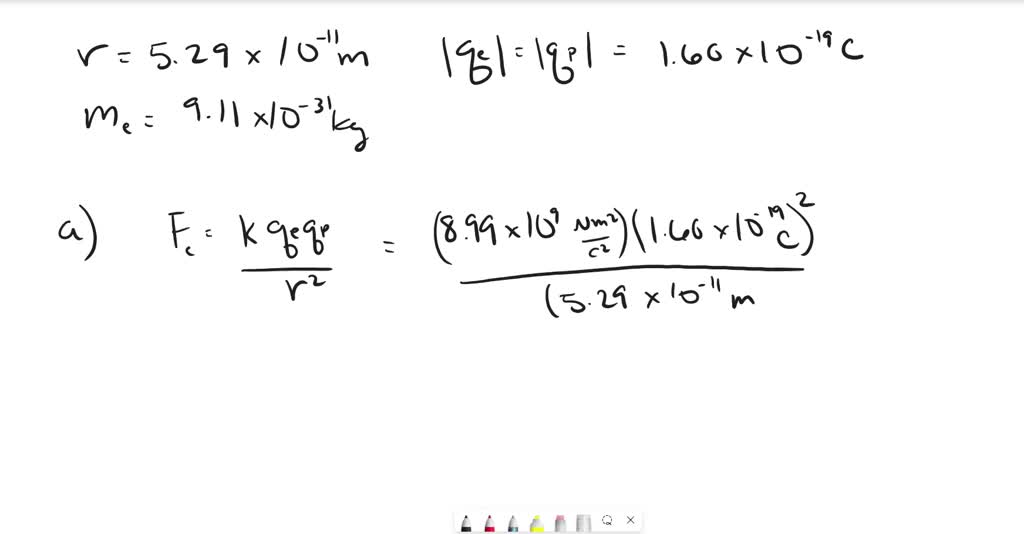 r = 5.29 × 10⁻¹¹ m |qₑ| = |qₚ| = 1.60 × 10⁻¹⁹ C
mₑ = 9.11 × 10⁻³¹ kg
a) Fₑ = k qₑqₚ / r² = (8.99 × 10⁹ Nm²/C²)(1.60 × 10⁻¹⁹ C)² / (5.29 × 10⁻¹¹ m